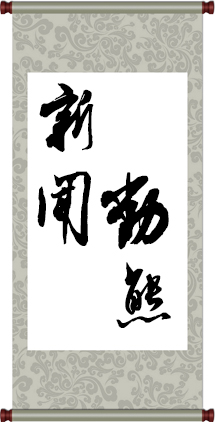 新聞
動態